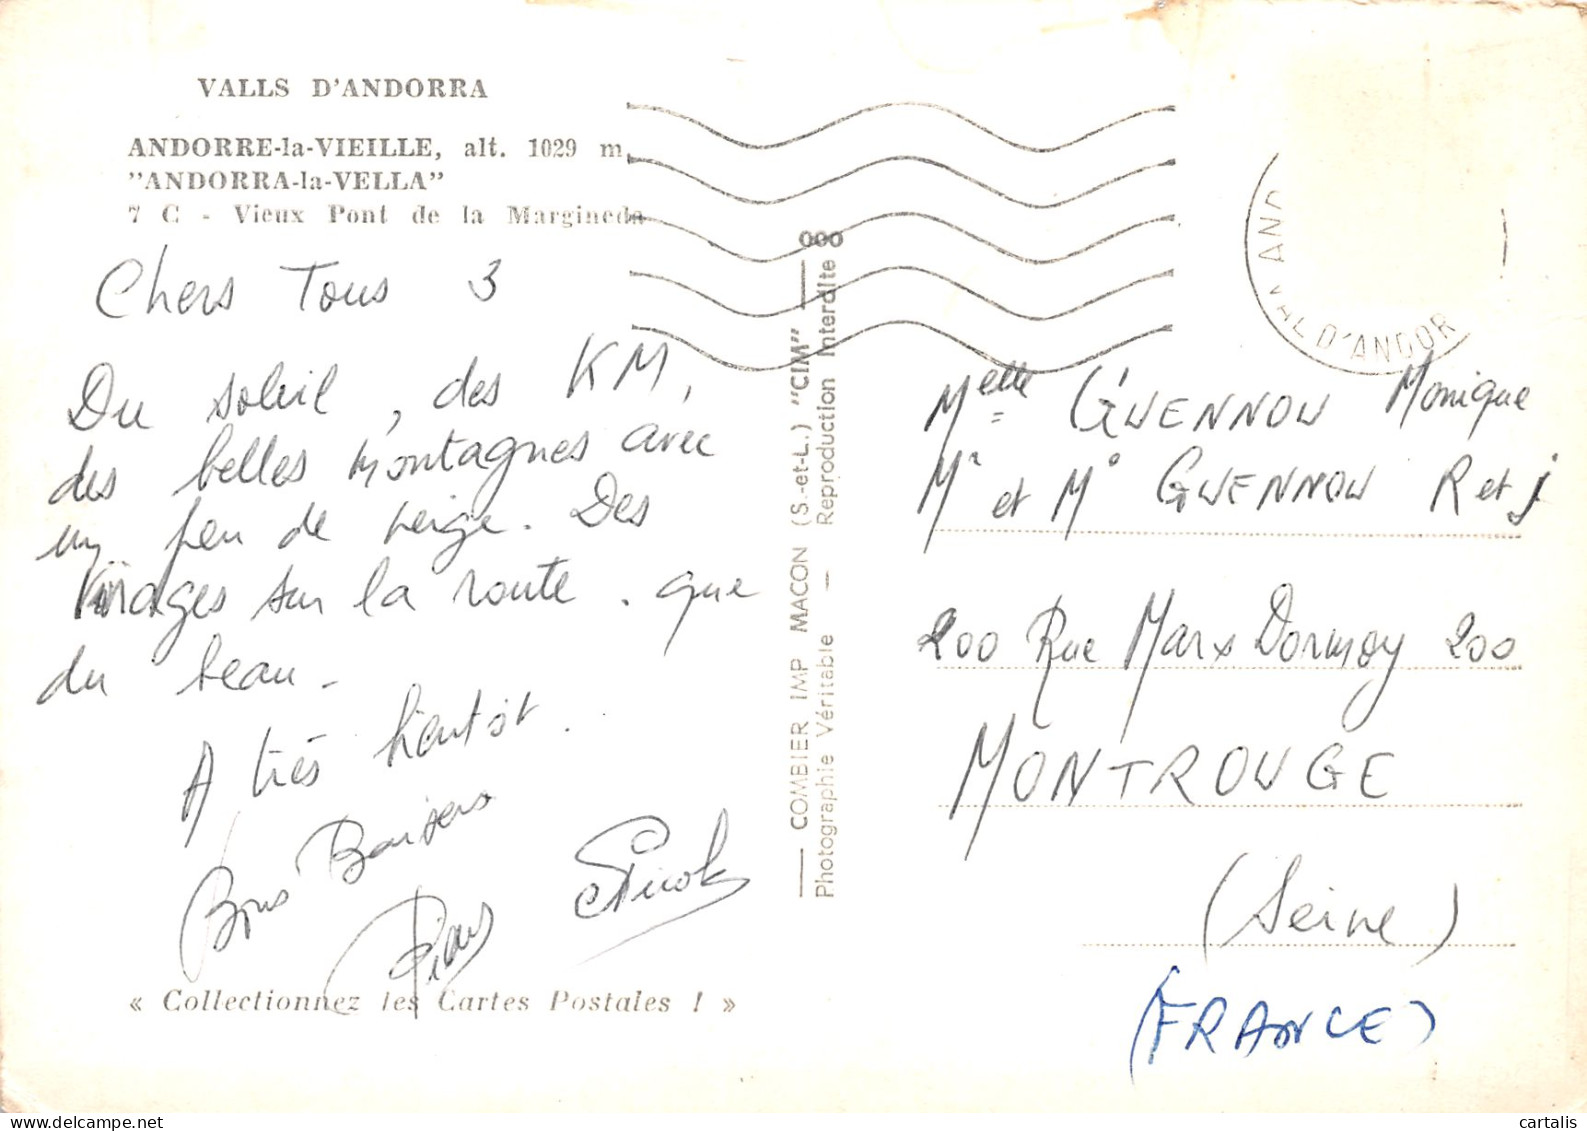 VALLS D'ANDORRA
ANDORRE-la-VIEILLE, alt. 1029 m.
"ANDORRA-la-VELLA"
7 C - Vieux Pont de la Margineda
Chers Tous 3
Du soleil, des KM,
des belles montagnes avec
un peu de neige. Des
Virages sur la route. que
du beau.
A très bientôt.
Bons Baisers
Nicole
« Collectionnez les Cartes Postales ! »
COMBIER IMP MACON (S.-et-L.) "CIM"
Photographie Véritable — Reproduction Interdite
000
AND
VAL D'ANDOR
Melle GWENNOU Monique
Mr et Me GWENNOU R et J
200 Rue Marx Dormoy 200
MONTROUGE
(Seine)
(FRANCE)
cartalis